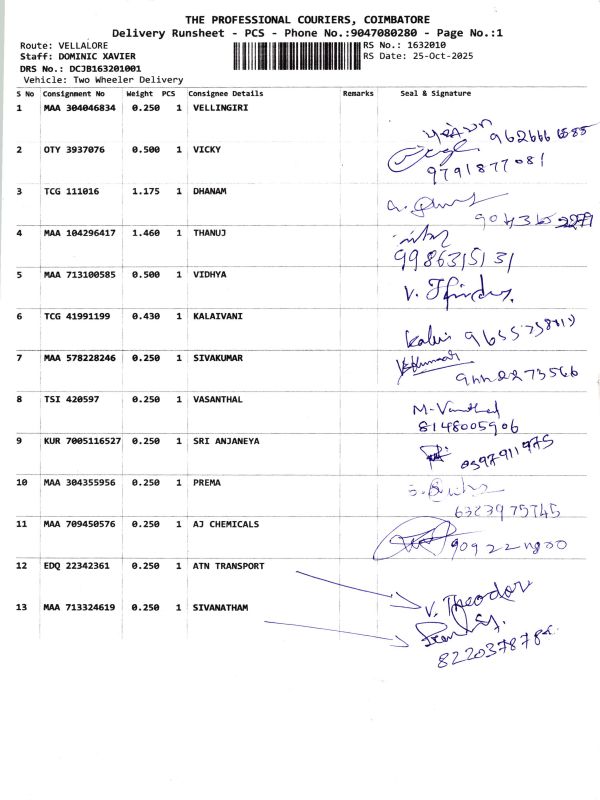 THE PROFESSIONAL COURIERS, COIMBATORE
Delivery Runsheet - PCS - Phone No.:9047080280 - Page No.:1
Route: VELLALORE RS No.: 1632010
Staff: DOMINIC XAVIER RS Date: 25-Oct-2025
DRS No.: DCJB163201001
Vehicle: Two Wheeler Delivery
S No Consignment No Weight PCS Consignee Details Remarks Seal & Signature
1 MAA 304046834 0.250 1 VELLINGIRI
2 OTY 3937076 0.500 1 VICKY
9791877081
3 TCG 111016 1.175 1 DHANAM
4 MAA 104296417 1.460 1 THANUJ
9986315131
5 MAA 713100585 0.500 1 VIDHYA
6 TCG 41991199 0.430 1 KALAIVANI
7 MAA 578228246 0.250 1 SIVAKUMAR
8 TSI 420597 0.250 1 VASANTHAL
8148005906
9 KUR 7005116527 0.250 1 SRI ANJANEYA
10 MAA 304355956 0.250 1 PREMA
11 MAA 709450576 0.250 1 AJ CHEMICALS
12 EDQ 22342361 0.250 1 ATN TRANSPORT
V. Theodor
13 MAA 713324619 0.250 1 SIVANATHAM